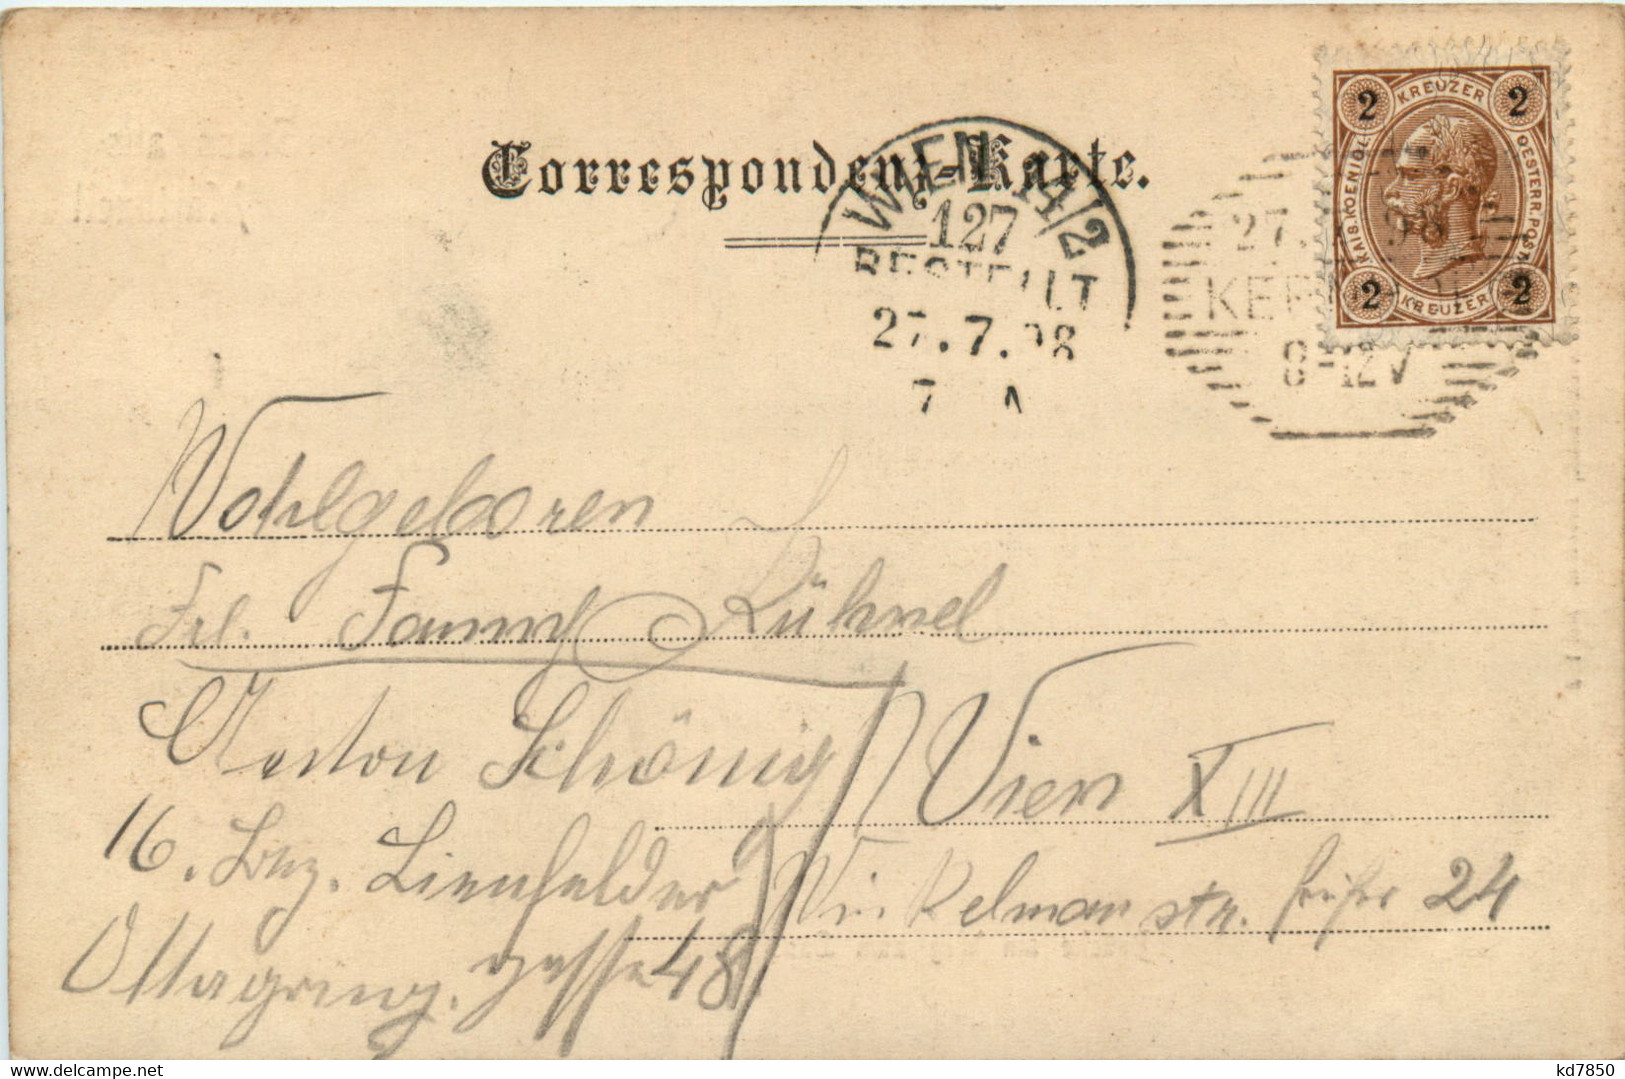 Correspondenz-Karte.
2 KREUZER 2
KAIS. KOENIGL. OESTERR. POST.
2 KREUZER 2
WIEN 14/2
127
BESTELLT
27.7.98
7 A
27. 98
8-12V
Wohlgeboren
Frl. Fanny Kühnel
Anton Schönig Wien XIII
16. Bez. Lienfelder Winkelmanstr. früher 24
Ottagring. gasse 48
delcampe.net
kd7850